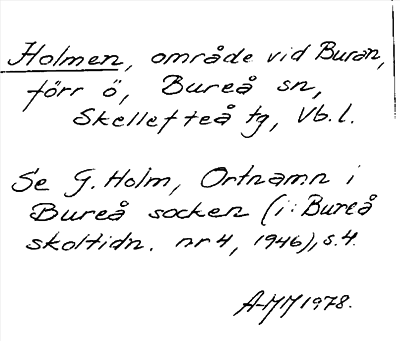 Holmen, område vid Burån,
förr ö, Bureå sn,
Skellefteå tg, Vb.l.
Se G. Holm, Ortnamn i
Bureå socken (i: Bureå
skoltidn. nr 4, 1946), s. 4.
A-MM 1978.